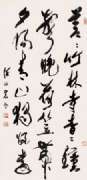 蒼々竹林寺杳々鐘
聲晚荷笠帶
夕陽青山獨歸遠